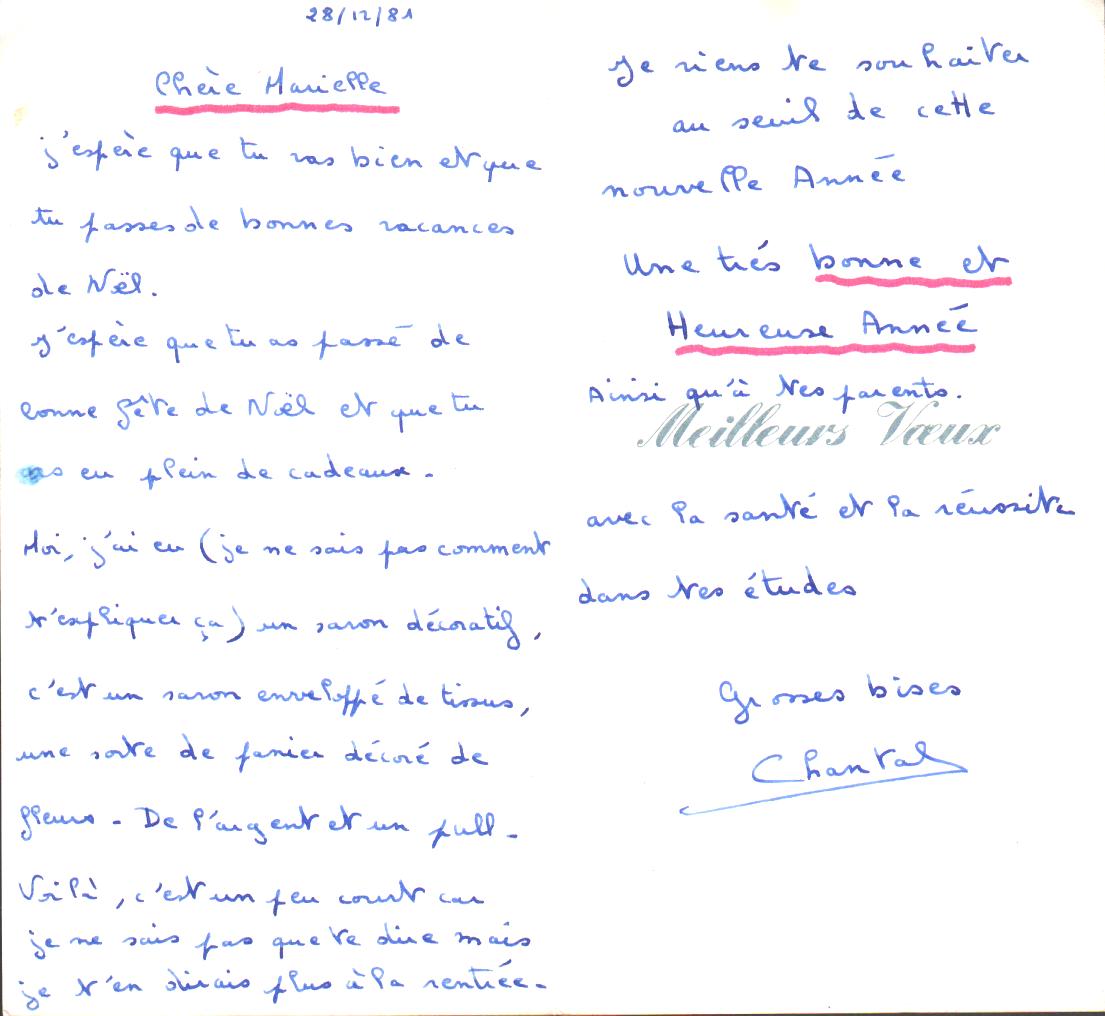 28/12/81
Chère Marielle
j'espère que tu vas bien et que
tu passes de bonnes vacances
de Nöel.
j'espère que tu as passé de
bonne fête de Nöel et que tu
as eu plein de cadeaux.
Moi, j'ai eu (je ne sais pas comment
t'expliquer ça) un savon décoratif,
c'est un savon enveloppé de tissus,
une sorte de panier décoré de
fleurs - De l'argent et un pull -
Voilà, c'est un peu court car
je ne sais pas que te dire mais
je t'en dirais plus à la rentrée -
Je viens te souhaiter
au seuil de cette
nouvelle Année
Une trés bonne et
Heureuse Année
Ainsi qu'à tes parents.
Meilleurs Vœux
avec la santé et la réussite
dans tes études
Grosses bises
Chantal